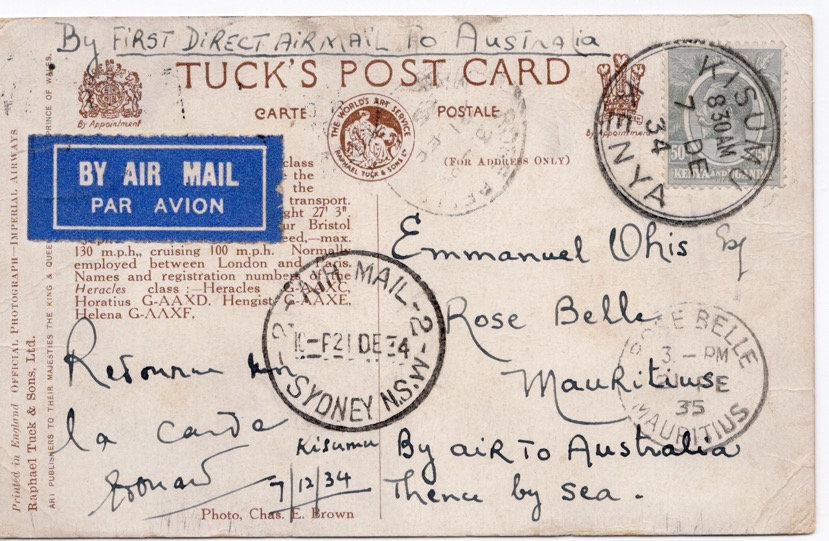 By FIRST DIRECT AIRMAIL To Australia
TUCK'S POST CARD
By Appointment
CARTE
POSTALE
By Appointment
THE WORLD'S ART SERVICE
RAPHAEL TUCK & SONS LTD
(FOR ADDRESS ONLY)
KISUMU
8 30 AM
7 DE
34
KENYA
50
50
KENYA AND UGANDA
BY AIR MAIL
PAR AVION
class
the
the
transport.
ght 27' 3",
ur Bristol
eed,—max.
130 m.p.h., cruising 100 m.p.h. Normally
employed between London and Paris.
Names and registration numbers of the
Heracles class :—Heracles G-AAXC,
Horatius G-AAXD. Hengist G-AAXE,
Helena G-AAXF.
2-AIR MAIL-2
21 DE 34
SYDNEY N.S.W.
Emmanuel Ohis
Rose Belle
Mauritius
By air To Australia
Thence by sea.
ROSE BELLE
3. - PM
35
MAURITIUS
Retourne
la carte
Kisumu
7/12/34
Photo, Chas. E. Brown
Printed in England OFFICIAL PHOTOGRAPH—IMPERIAL AIRWAYS
Raphael Tuck & Sons, Ltd.
ART PUBLISHERS TO THEIR MAJESTIES THE KING & QUEEN
PRINCE OF WALES.